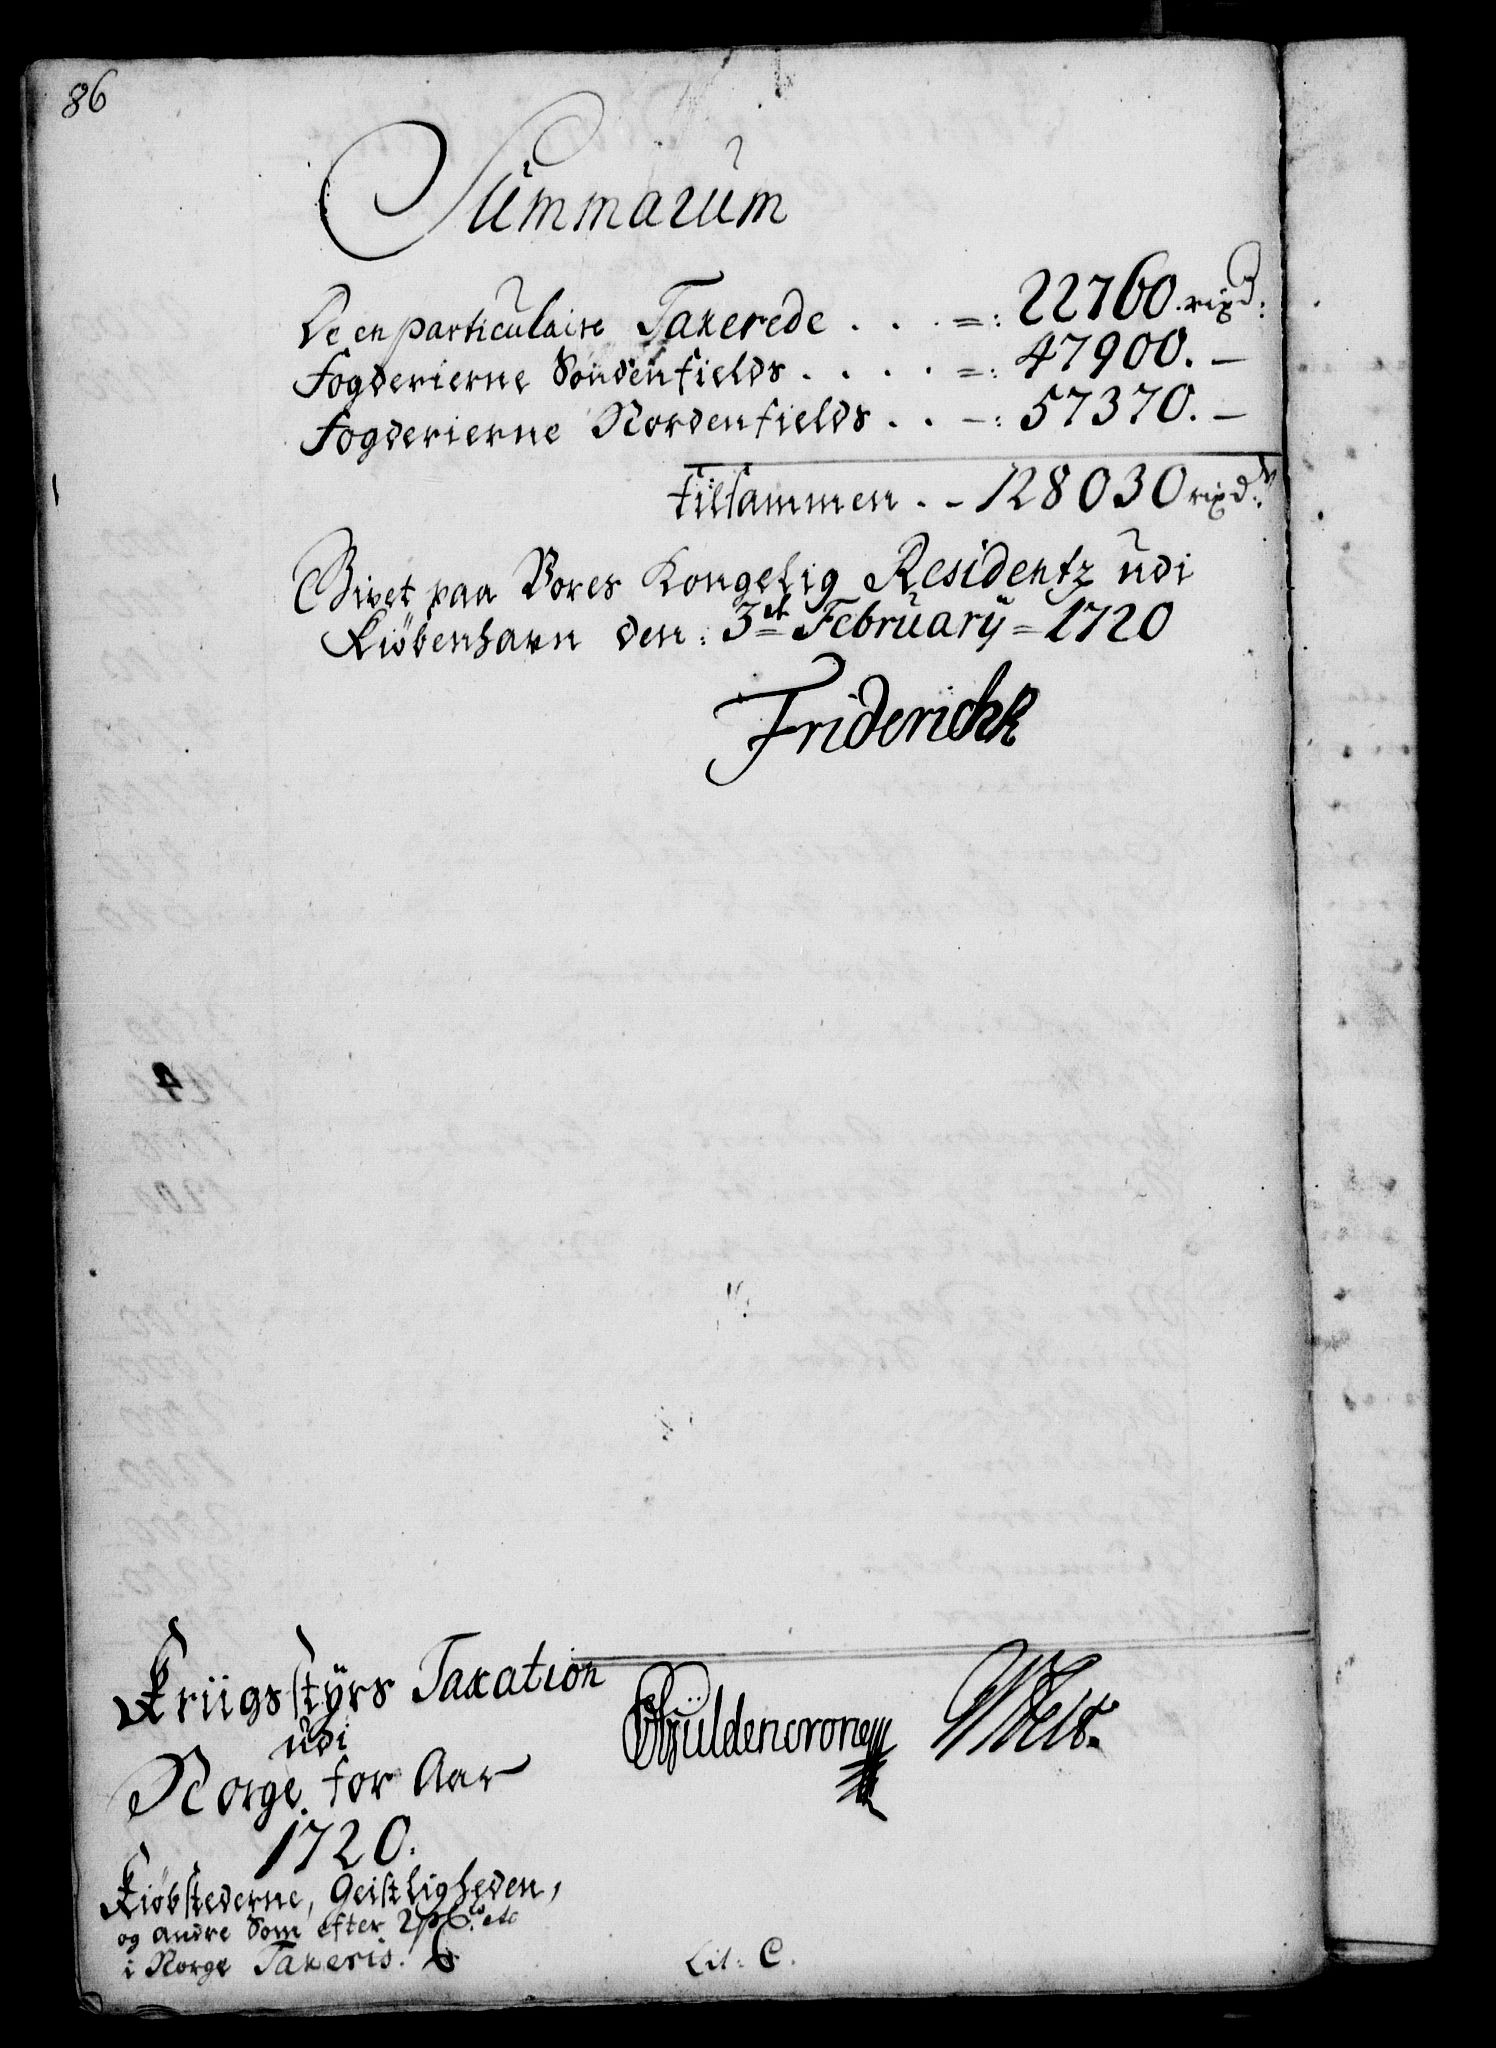 86
Summarum
De en particulaire Taxerede . . . =: 22760. rixd:
Fogderierne Söndenfields . . . . =: 47900. —
Fogderierne Nordenfields . . -: 57370. —
tilsammen . . - 128030 rixd:
Givet paa Vores Kongelig Residentz udi
Kiöbenhavn den: 3de February = 1720
Friderich R
Kriigs Styrs Taxation
udi
Norge for Aar
1720.
Kiöbstederne, Geistligheden,
og andre Som efter etc
i Norge Taxeris.
Güldencrone
Lit: C.